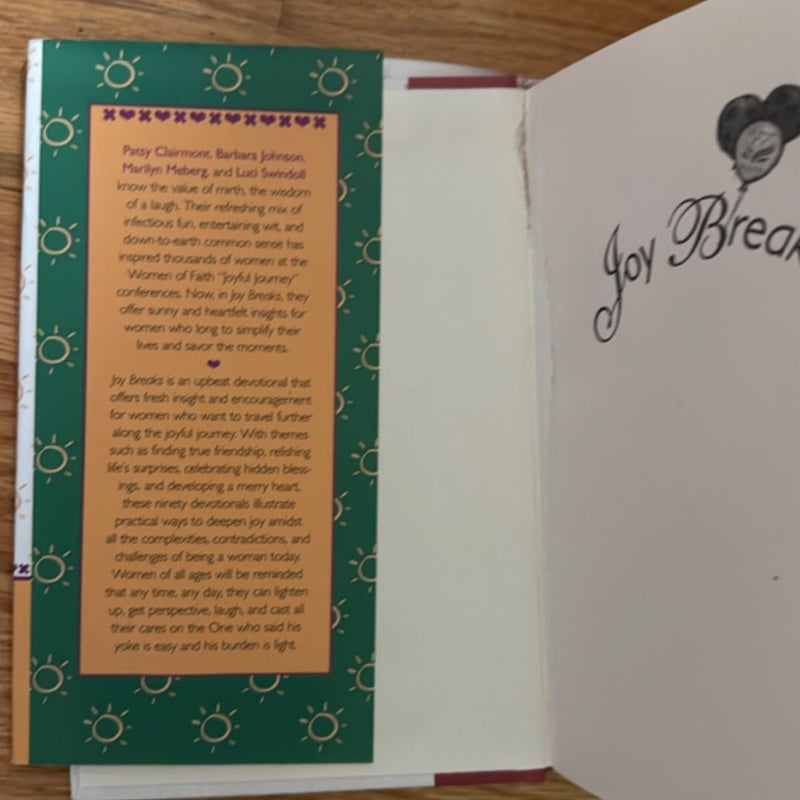 Patsy Clairmont, Barbara Johnson,
Marilyn Meberg, and Luci Swindoll
know the value of mirth, the wisdom
of a laugh. Their refreshing mix of
infectious fun, entertaining wit, and
down-to-earth common sense has
inspired thousands of women at the
Women of Faith "Joyful Journey"
conferences. Now, in Joy Breaks, they
offer sunny and heartfelt insights for
women who long to simplify their
lives and savor the moments.
Joy Breaks is an upbeat devotional that
offers fresh insight and encouragement
for women who want to travel further
along the joyful journey. With themes
such as finding true friendship, relishing
life's surprises, celebrating hidden bless-
ings, and developing a merry heart,
these ninety devotionals illustrate
practical ways to deepen joy amidst
all the complexities, contradictions, and
challenges of being a woman today.
Women of all ages will be reminded
that any time, any day, they can lighten
up, get perspective, laugh, and cast all
their cares on the One who said his
yoke is easy and his burden is light.
Joy Break